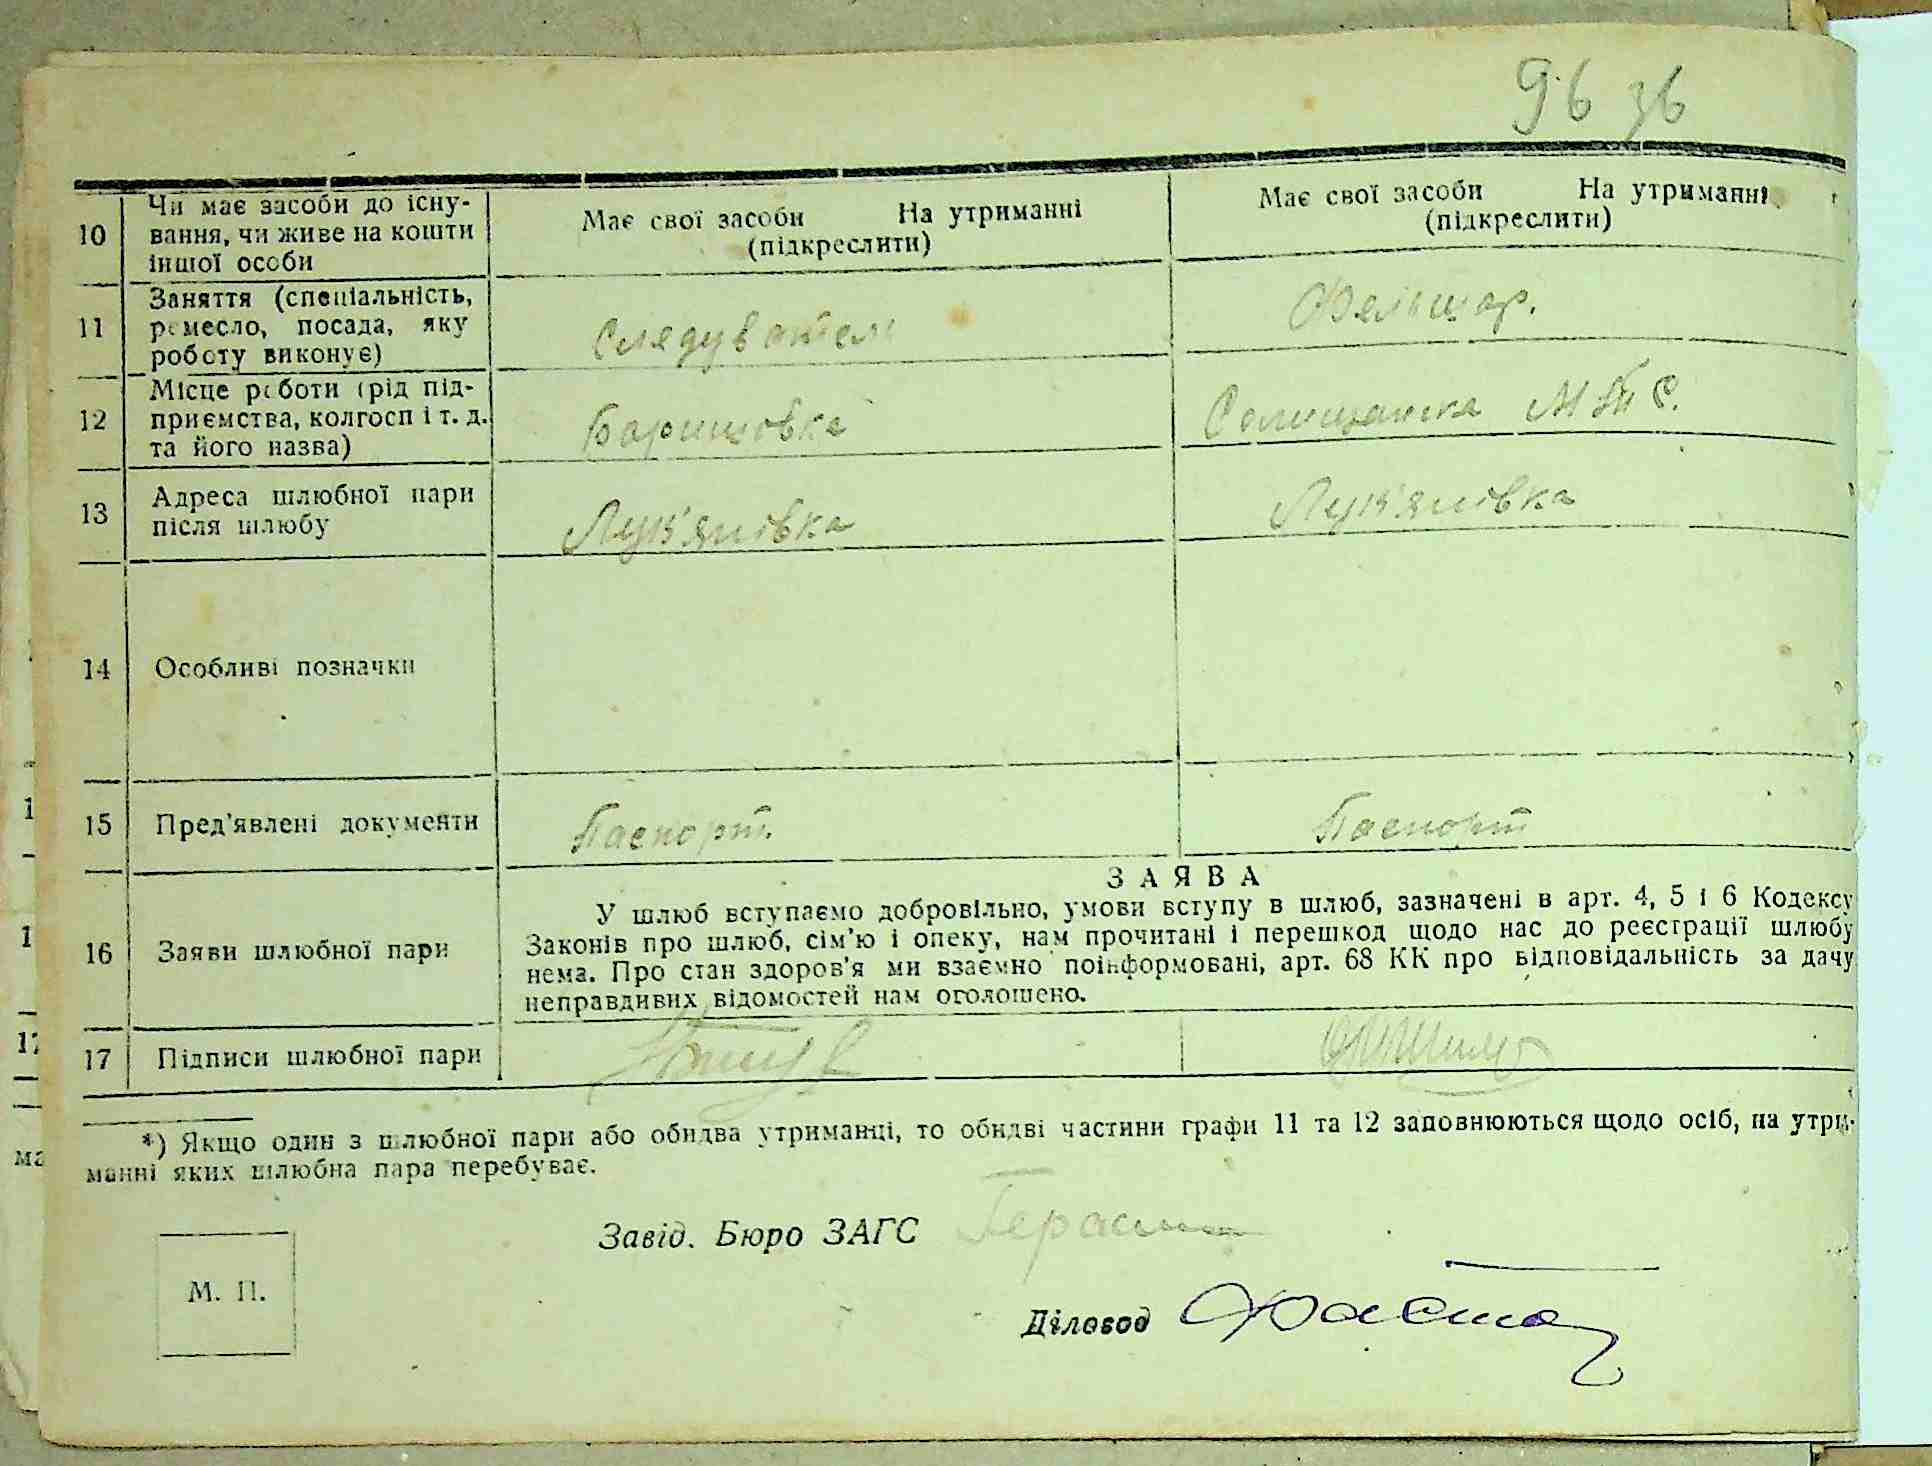 96 36
10 Чи має засоби до існу-
вання, чи живе на кошти
іншої особи
Має свої засоби На утриманні
(підкреслити)
Має свої засоби На утриманні
(підкреслити)
11 Заняття (спеціальність,
ремесло, посада, яку
роботу виконує)
Следуватель
Фельшар.
12 Місце роботи (рід під-
приємства, колгосп і т. д.
та його назва)
Баришовка
Селищанска МТС.
13 Адреса шлюбної пари
після шлюбу
Лук'янівка
Лук'янівка
14 Особливі позначки
15 Пред'явлені документи
Паспорт.
Паспорт
16 Заяви шлюбної пари
ЗАЯВА
У шлюб вступаємо добровільно, умови вступу в шлюб, зазначені в арт. 4, 5 і 6 Кодексу
Законів про шлюб, сім'ю і опеку, нам прочитані і перешкод щодо нас до реєстрації шлюбу
нема. Про стан здоров'я ми взаємно поінформовані, арт. 68 КК про відповідальність за дачу
неправдивих відомостей нам оголошено.
17 Підписи шлюбної пари
*) Якщо один з шлюбної пари або обидва утриманці, то обидві частини графи 11 та 12 заповнюються щодо осіб, на утри-
манні яких шлюбна пара перебуває.
Завід. Бюро ЗАГС
М. П.
Діловод